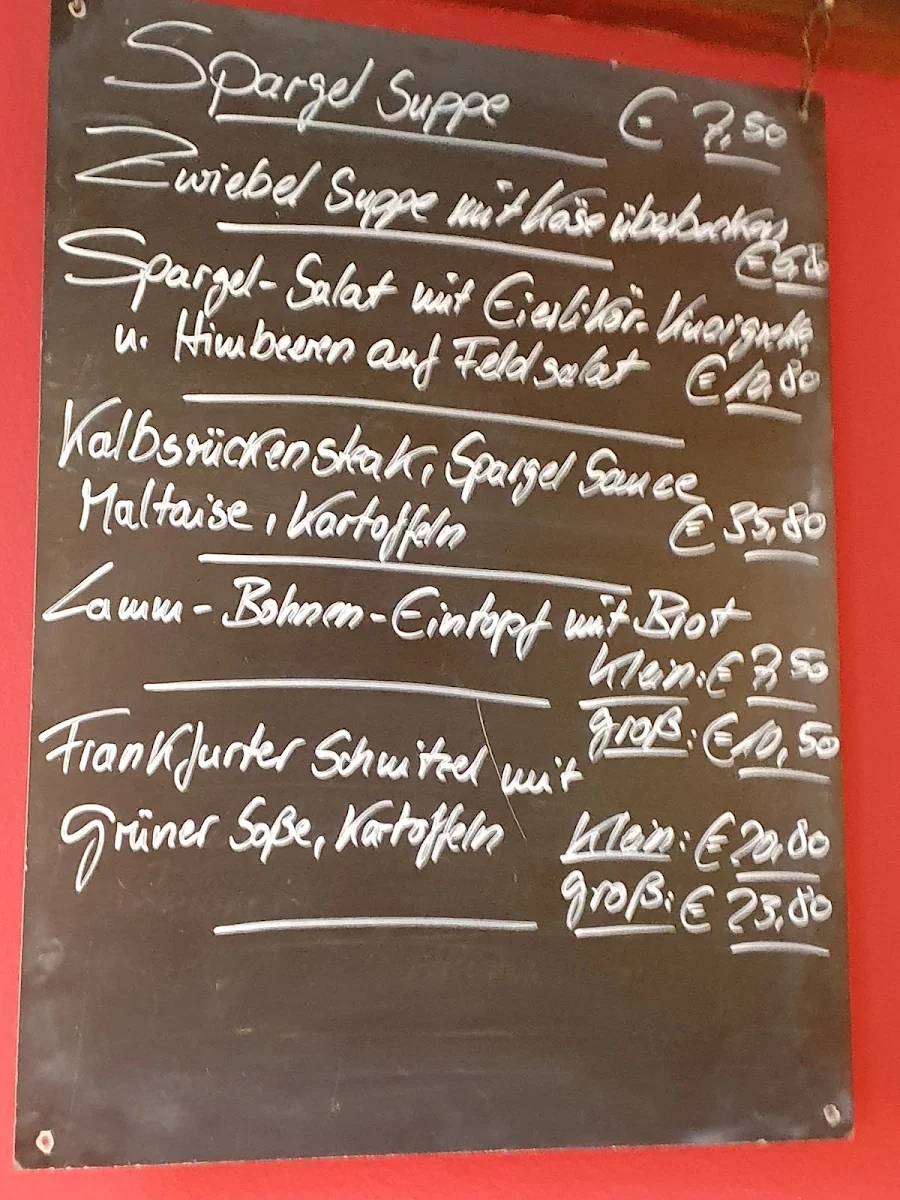 Spargel Suppe € 7,50
Zwiebel Suppe mit Käse überbacken
€ 6,80
Spargel-Salat mit Eierlikör-Vinaigrette
u. Himbeeren auf Feldsalat € 10,80
Kalbsrückensteak, Spargel Sauce
Maltaise, Kartoffeln € 35,80
Lamm-Bohnen-Eintopf mit Brot
Klein: € 7,50
groß: € 10,50
Frankfurter Schnitzel mit
Grüner Soße, Kartoffeln Klein: € 20,80
groß: € 23,80